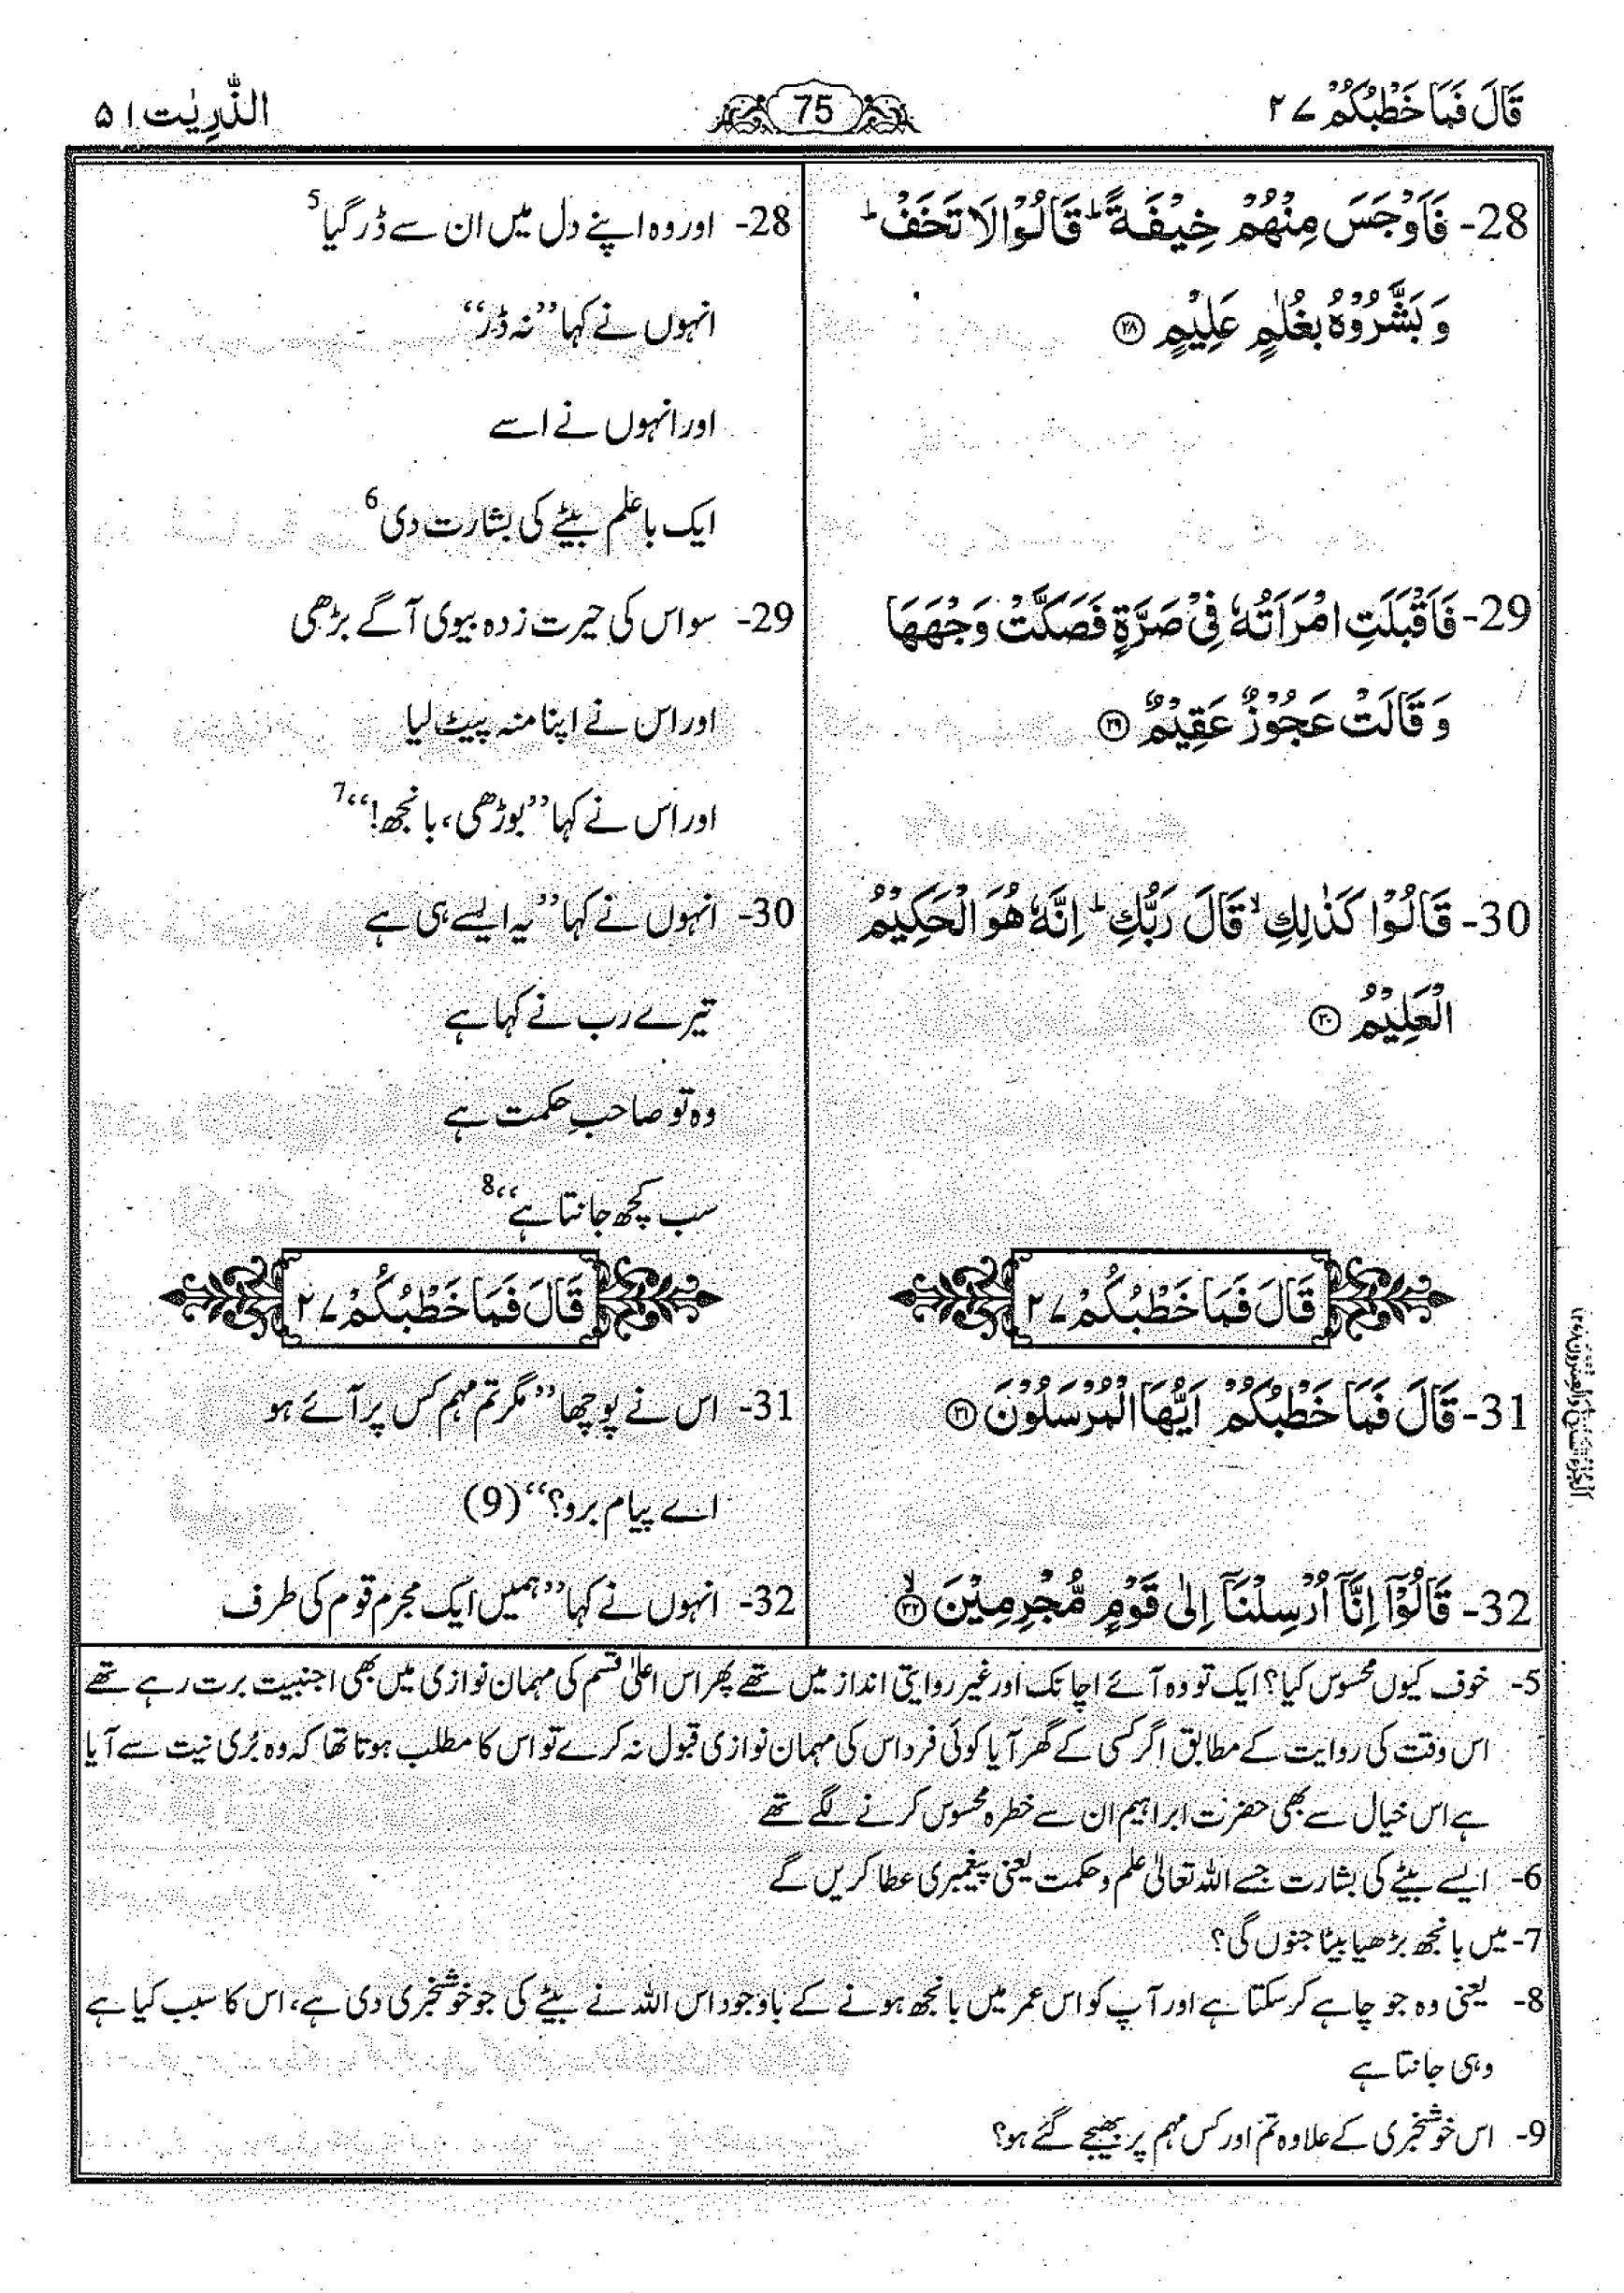 قَالَ فَمَا خَطْبُكُمْ ۲۷
75
الذّٰرِيٰت ۵۱
28- فَاَوْجَسَ مِنْهُمْ خِيْفَةً ؕ قَالُوْا لَا تَخَفْ ؕ
وَ بَشَّرُوْهُ بِغُلٰمٍ عَلِيْمٍ ۝۲۸
29- فَاَقْبَلَتِ امْرَاَتُهٗ فِيْ صَرَّةٍ فَصَكَّتْ وَجْهَهَا
وَ قَالَتْ عَجُوْزٌ عَقِيْمٌ ۝۲۹
30- قَالُوْا كَذٰلِكِ ۙ قَالَ رَبُّكِ ؕ اِنَّهٗ هُوَ الْحَكِيْمُ
الْعَلِيْمُ ۝۳۰
قَالَ فَمَا خَطْبُكُمْ ۲۷
31- قَالَ فَمَا خَطْبُكُمْ اَيُّهَا الْمُرْسَلُوْنَ ۝۳۱
32- قَالُوْۤا اِنَّاۤ اُرْسِلْنَاۤ اِلٰى قَوْمٍ مُّجْرِمِيْنَ ۝۳۲ۙ
28- اور وہ اپنے دل میں ان سے ڈر گیا5
انہوں نے کہا ’’نہ ڈر‘‘
اور انہوں نے اسے
ایک باعلم بیٹے کی بشارت دی6
29- سو اس کی حیرت زدہ بیوی آگے بڑھی
اور اس نے اپنا منہ پیٹ لیا
اور اس نے کہا ’’بوڑھی، بانجھ!‘‘7
30- انہوں نے کہا ’’یہ ایسے ہی ہے
تیرے رب نے کہا ہے
وہ تو صاحبِ حکمت ہے
سب کچھ جانتا ہے‘‘8
قَالَ فَمَا خَطْبُكُمْ ۲۷
31- اس نے پوچھا ’’مگر تم مہم کس پر آئے ہو
اے پیام برو؟‘‘(9)
32- انہوں نے کہا ’’ہمیں ایک مجرم قوم کی طرف
الجزء السابع والعشرون
5- خوف کیوں محسوس کیا؟ ایک تو وہ آئے اچانک اور غیر روایتی انداز میں تھے پھر اس اعلیٰ قسم کی مہمان نوازی میں بھی اجنبیت برت رہے تھے
اس وقت کی روایت کے مطابق اگر کسی کے گھر آیا کوئی فرد اس کی مہمان نوازی قبول نہ کرے تو اس کا مطلب ہوتا تھا کہ وہ بُری نیت سے آیا
ہے اس خیال سے بھی حضرت ابراہیم ان سے خطرہ محسوس کرنے لگے تھے
6- ایسے بیٹے کی بشارت جسے اللہ تعالیٰ علم و حکمت یعنی پیغمبری عطا کریں گے
7- میں بانجھ بڑھیا بیٹا جنوں گی؟
8- یعنی وہ جو چاہے کر سکتا ہے اور آپ کو اس عمر میں بانجھ ہونے کے باوجود اس اللہ نے بیٹے کی جو خوشخبری دی ہے، اس کا سبب کیا ہے
وہی جانتا ہے
9- اس خوشخبری کے علاوہ تم اور کس مہم پر بھیجے گئے ہو؟